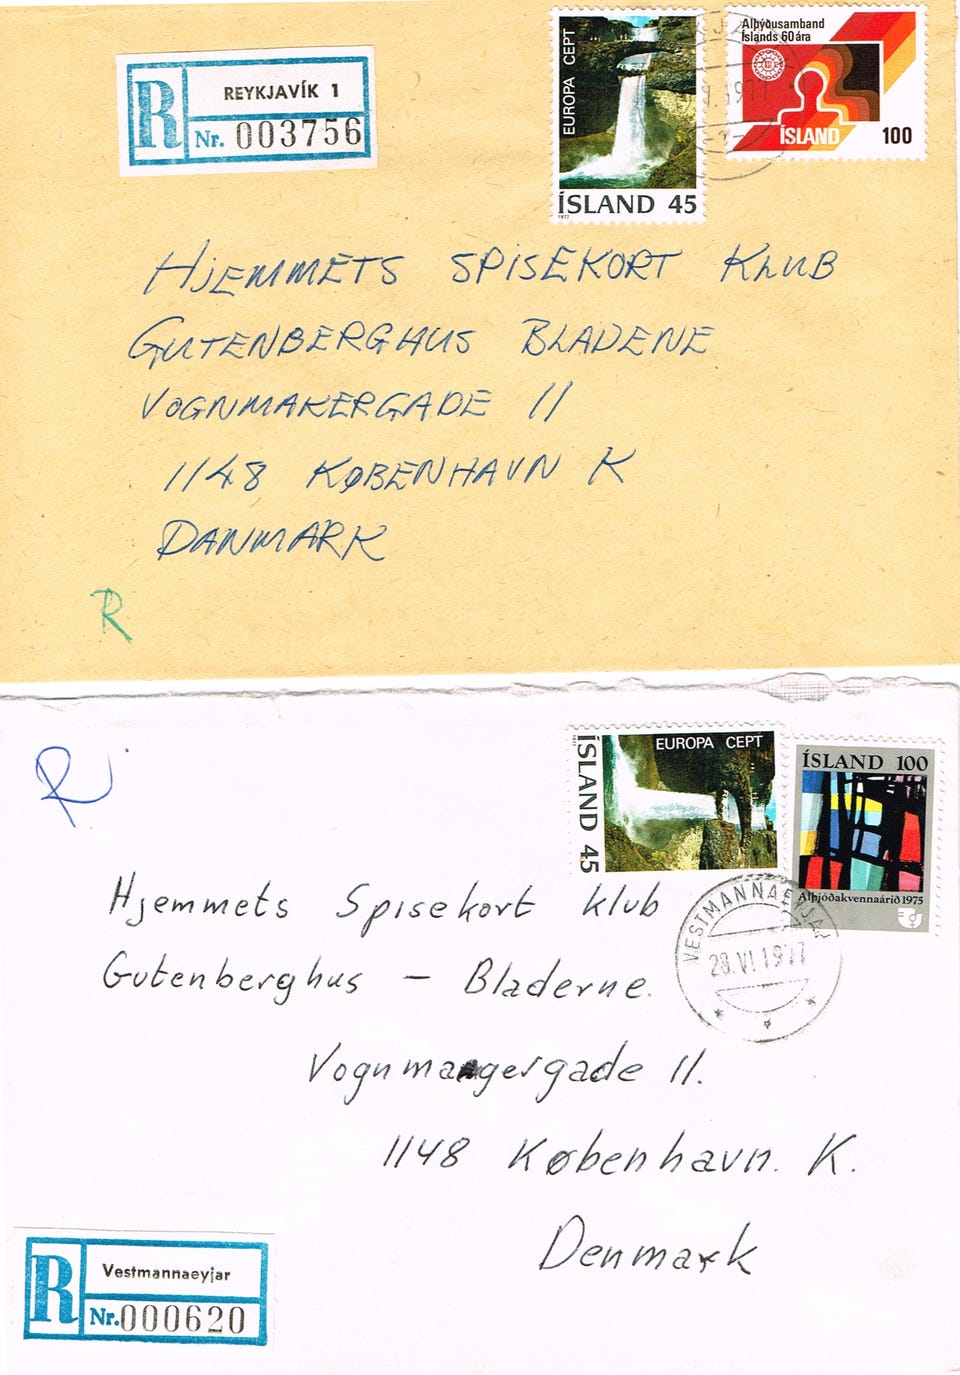 R REYKJAVÍK 1
Nr. 003756
EUROPA CEPT
ÍSLAND 45
1977
Alþýðusamband
Íslands 60 ára
ÍSLAND
100
9.1977
HJEMMETS SPISEKORT KLUB
GUTENBERGHUS BLADENE
VOGNMAKERGADE 11
1148 KØBENHAVN K
DANMARK
R
R
EUROPA CEPT
ÍSLAND 45
1977
ÍSLAND 100
Alþjóðakvennaárið 1975
VESTMANNAEYJAR
28.VI.1977
Hjemmets Spisekort Klub
Gutenberghus – Bladerne.
Vognmangergade 11.
1148 København. K.
Denmark
R Vestmannaeyjar
Nr. 000620